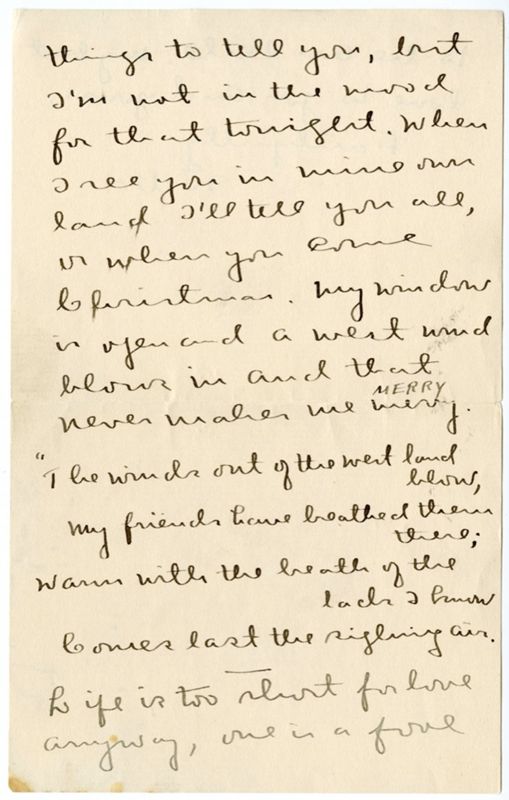 things to tell you, but
I'm not in the mood
for that tonight. When
I see you in mine own
land I'll tell you all,
or when you come
Christmas. My window
is open and a west wind
blows in and that
MERRY
never makes me merry.
"The winds out of the west land
blow,
My friends have breathed them
there;
Warm with the breath of the
lads I know
Comes last the sighing air.
Life is too short for love
anyway, one is a fool